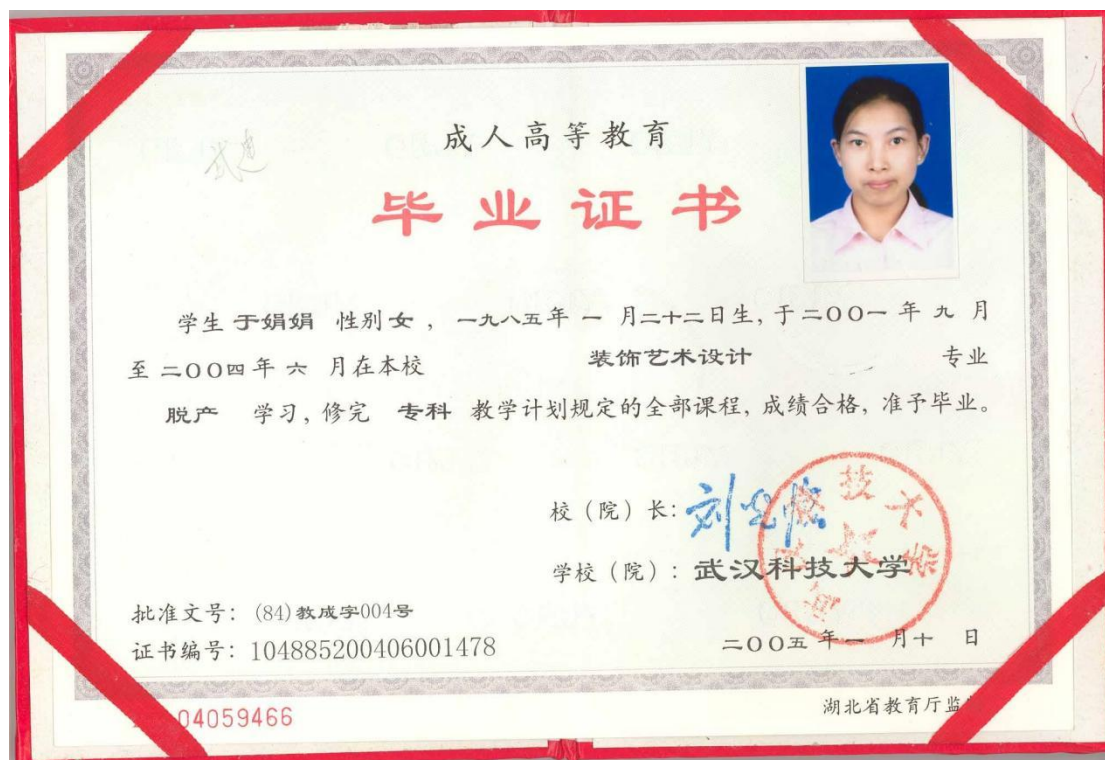 成人高等教育
毕业证书
学生 于娟娟 性别 女 ，一九八五年 一 月二十二日生, 于二00一 年 九 月
至 二00四 年 六 月在本校 装饰艺术设计 专业
脱产 学习, 修完 专科 教学计划规定的全部课程, 成绩合格, 准予毕业。
校（院）长:
学校（院）: 武汉科技大学
批准文号: (84)教成字004号
证书编号: 104885200406001478
二00五 年 一 月 十 日
04059466
湖北省教育厅监